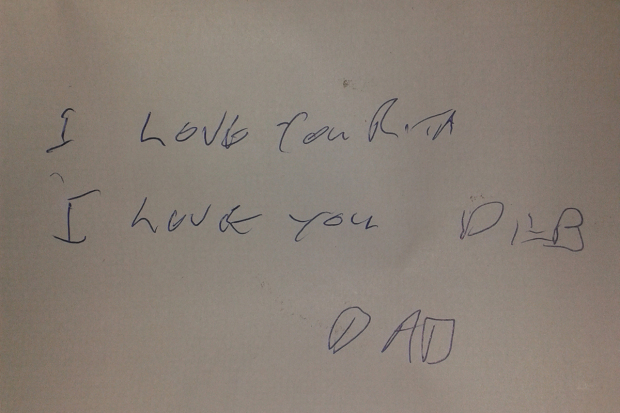 I LOVE YOU RITA
I LOVE YOU DEB
DAD